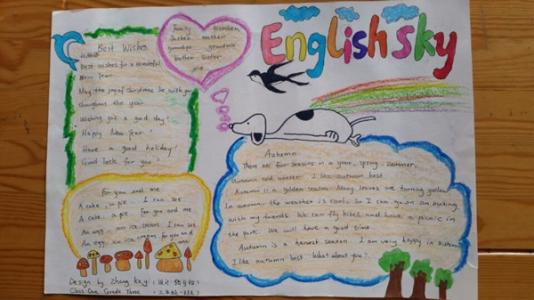 English sky
family members
father mother
grandpa grandma
brother sister
me
Best Wishes
Best wishes for a wonderful
New Year.
May the joy of Christmas be with you
throughout the year.
Wishing you a good day!
Happy New Year!
Have a good holiday!
Good luck for you!
For you and me
A cake, a pie. I can see
A cake, a pie. For you and me
An egg, an ice cream. I can see
An egg, ice cream for you and
me
Autumn
There are four seasons in a year, spring, summer,
autumn and winter. I like autumn best.
Autumn is a golden season. Many leaves are turning yellow.
In autumn the weather is cool. So I can go on an outing
with my friends. We can fly kites and have a picnic in
the park. We will have a good time.
Autumn is a harvest season. I am very happy in autumn.
I like autumn best. What about you?
Design by Zhang
Class One, Grade Three